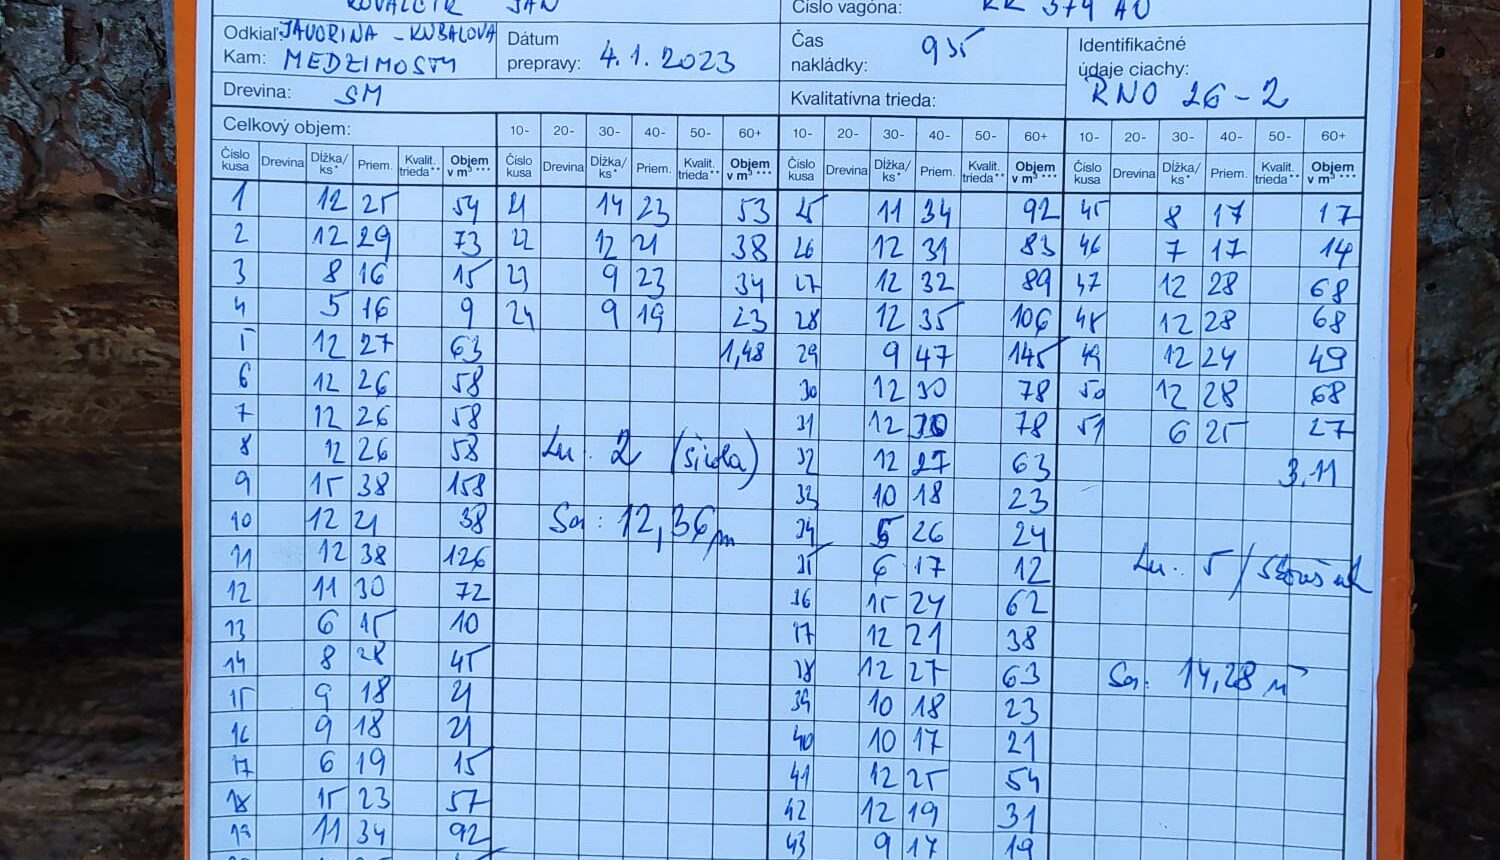 KOVALČÍK JÁN Číslo vagóna: KK 374 AU
Odkiaľ: JAVORINA - KUBALOVA Dátum Čas 9 35 Identifikačné
Kam: MEDZIMOSTY prepravy: 4.1.2023 nakládky: údaje ciachy:
Drevina: SM Kvalitatívna trieda: RNO 26-2
Celkový objem: 10- 20- 30- 40- 50- 60+ 10- 20- 30- 40- 50- 60+ 10- 20- 30- 40- 50- 60+
Číslo kusa Drevina Dĺžka/ks* Priem. Kvalit. trieda** Objem v m³*** Číslo kusa Drevina Dĺžka/ks* Priem. Kvalit. trieda** Objem v m³*** Číslo kusa Drevina Dĺžka/ks* Priem. Kvalit. trieda** Objem v m³*** Číslo kusa Drevina Dĺžka/ks* Priem. Kvalit. trieda** Objem v m³***
1 12 25 54 21 14 23 53 25 11 34 92 45 8 17 17
2 12 29 73 22 12 21 38 26 12 31 83 46 7 17 14
3 8 16 15 23 9 23 34 27 12 32 89 47 12 28 68
4 5 16 9 24 9 19 23 28 12 35 106 48 12 28 68
5 12 27 63 1,48 29 9 47 145 49 12 24 49
6 12 26 58 30 12 30 78 50 12 28 68
7 12 26 58 31 12 30 78 51 6 25 27
8 12 26 58 2 32 12 27 63 3,11
9 15 38 158 33 10 18 23
10 12 21 38 Sa: 12,36 34 5 26 24
11 12 38 126 35 6 17 12 5
12 11 30 72 36 15 24 62
13 6 15 10 37 12 21 38
14 8 28 45 38 12 27 63 Sa: 14,28
15 9 18 21 39 10 18 23
16 9 18 21 40 10 17 21
17 6 19 15 41 12 25 54
18 15 23 57 42 12 19 31
19 11 34 92 43 9 17 19